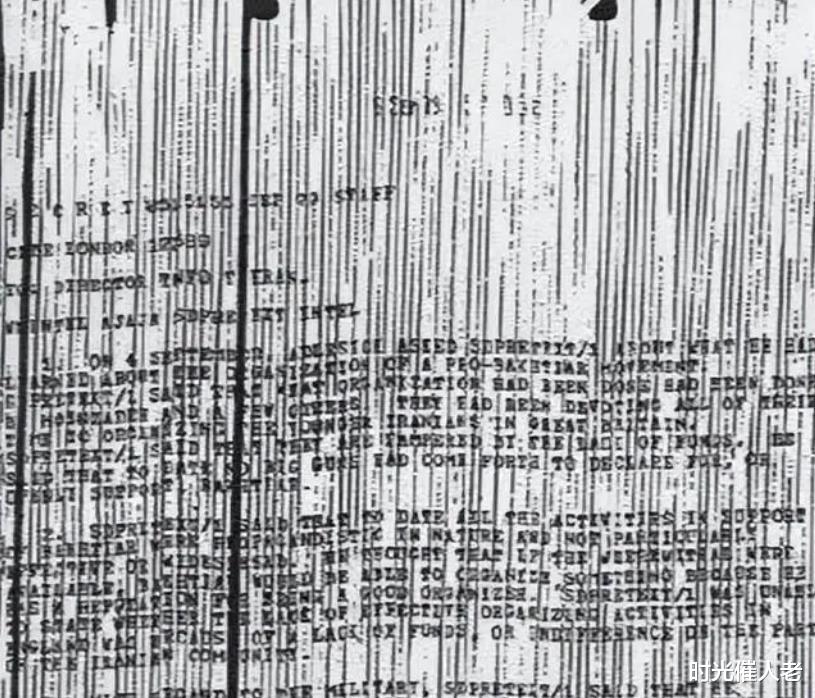 S E C R E T STAFF
CITE LONDON
TO: DIRECTOR INFO TEHRAN.
WNINTEL AJAJA SDPRETEXT INTEL
1. ON 4 SEPTEMBER, ASKED SDPRETEXT/1 ABOUT WHAT HE HAD
ABOUT THE ORGANIZATION OF A PRO-BAKHTIAR MOVEMENT.
SDPRETEXT/1 SAID THAT WHAT ORGANIZATION HAD BEEN DONE HAD BEEN DONE
AND A FEW OTHERS. THEY HAD BEEN DEVOTING ALL OF THEIR
TIME TO ORGANIZING THE YOUNGER IRANIANS IN GREAT BRITAIN.
SDPRETEXT/1 SAID THAT THEY ARE HAMPERED BY THE LACK OF FUNDS. HE
SAID THAT TO DATE NO BIG GUNS HAD COME FORTH TO DECLARE FOR, OR
OPENLY SUPPORT, BAKHTIAR.
2. SDPRETEXT/1 SAID THAT TO DATE ALL THE ACTIVITIES IN SUPPORT
OF BAKHTIAR WERE PROPAGANDISTIC IN NATURE AND NOT PARTICULARLY
OR WIDESPREAD. HE THOUGHT THAT IF THE WHEREWITHAL WERE
AVAILABLE, BAKHTIAR WOULD BE ABLE TO ORGANIZE SOMETHING BECAUSE HE
HAS A REPUTATION A GOOD ORGANIZER. SDPRETEXT/1 WAS
STATE WHETHER THE LACK OF EFFECTIVE ORGANIZING ACTIVITIES IN
ENGLAND WAS OF A LACK OF FUNDS, OR INDIFFERENCE ON THE PART
OF THE IRANIAN COMMUNITY.
REGARD TO THE MILITARY, SDPRETEXT/1 SAID THAT
时光催人老